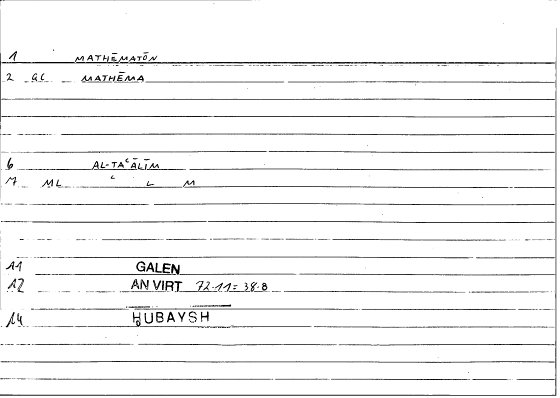 1 MATHĒMATŌN
2 GC MATHĒMA
6 AL-TAʿĀLĪM
7 ML ʿ L M
A1 GALEN
A2 AN VIRT 72.11 = 38.8
A4 ḤUBAYSH